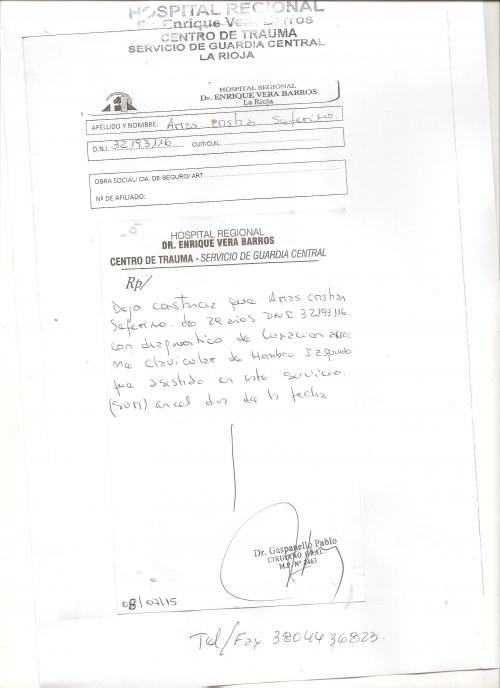 HOSPITAL REGIONAL
Dr. Enrique Vera Barros
CENTRO DE TRAUMA
SERVICIO DE GUARDIA CENTRAL
LA RIOJA
HOSPITAL REGIONAL
Dr. ENRIQUE VERA BARROS
La Rioja
APELLIDO Y NOMBRE: Arias Cristian Seferino.
D.N.I. 32193116 CUIT/CUIL:
OBRA SOCIAL/ CIA. DE SEGURO/ ART
Nº DE AFILIADO:
HOSPITAL REGIONAL
DR. ENRIQUE VERA BARROS
CENTRO DE TRAUMA - SERVICIO DE GUARDIA CENTRAL
Rp/
Dejo constancia que Arias Cristian
Seferino de 29 años DNI 32193116.
con diagnostico de Luxacion acro
mio clavicular de Hombro Izquierdo
fue asistido en este servicio.
en el dia de la fecha
Dr. Gaspanello Pablo
CIRUJANO GRAL.
M.P. Nº 2463
08/07/15
Tel/Fax 3804436823